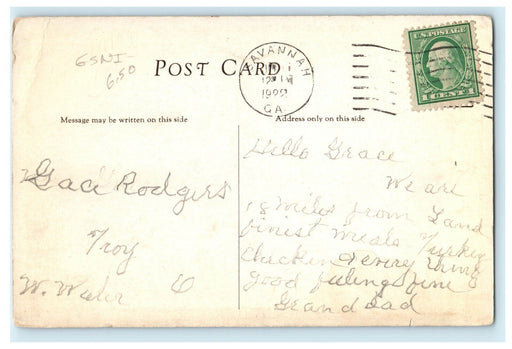 GSNI-
6.50
POST CARD
SAVANNAH
1
12 M
1922
GA.
U.S. POSTAGE
1 CENTS 1
Message may be written on this side
Address only on this side
Hello Grace
We are
18 miles from Land
finist meals Turkey
Chicken & every thing
good feelings fine
Grand dad
Gaci Rodgers
Troy
W. O